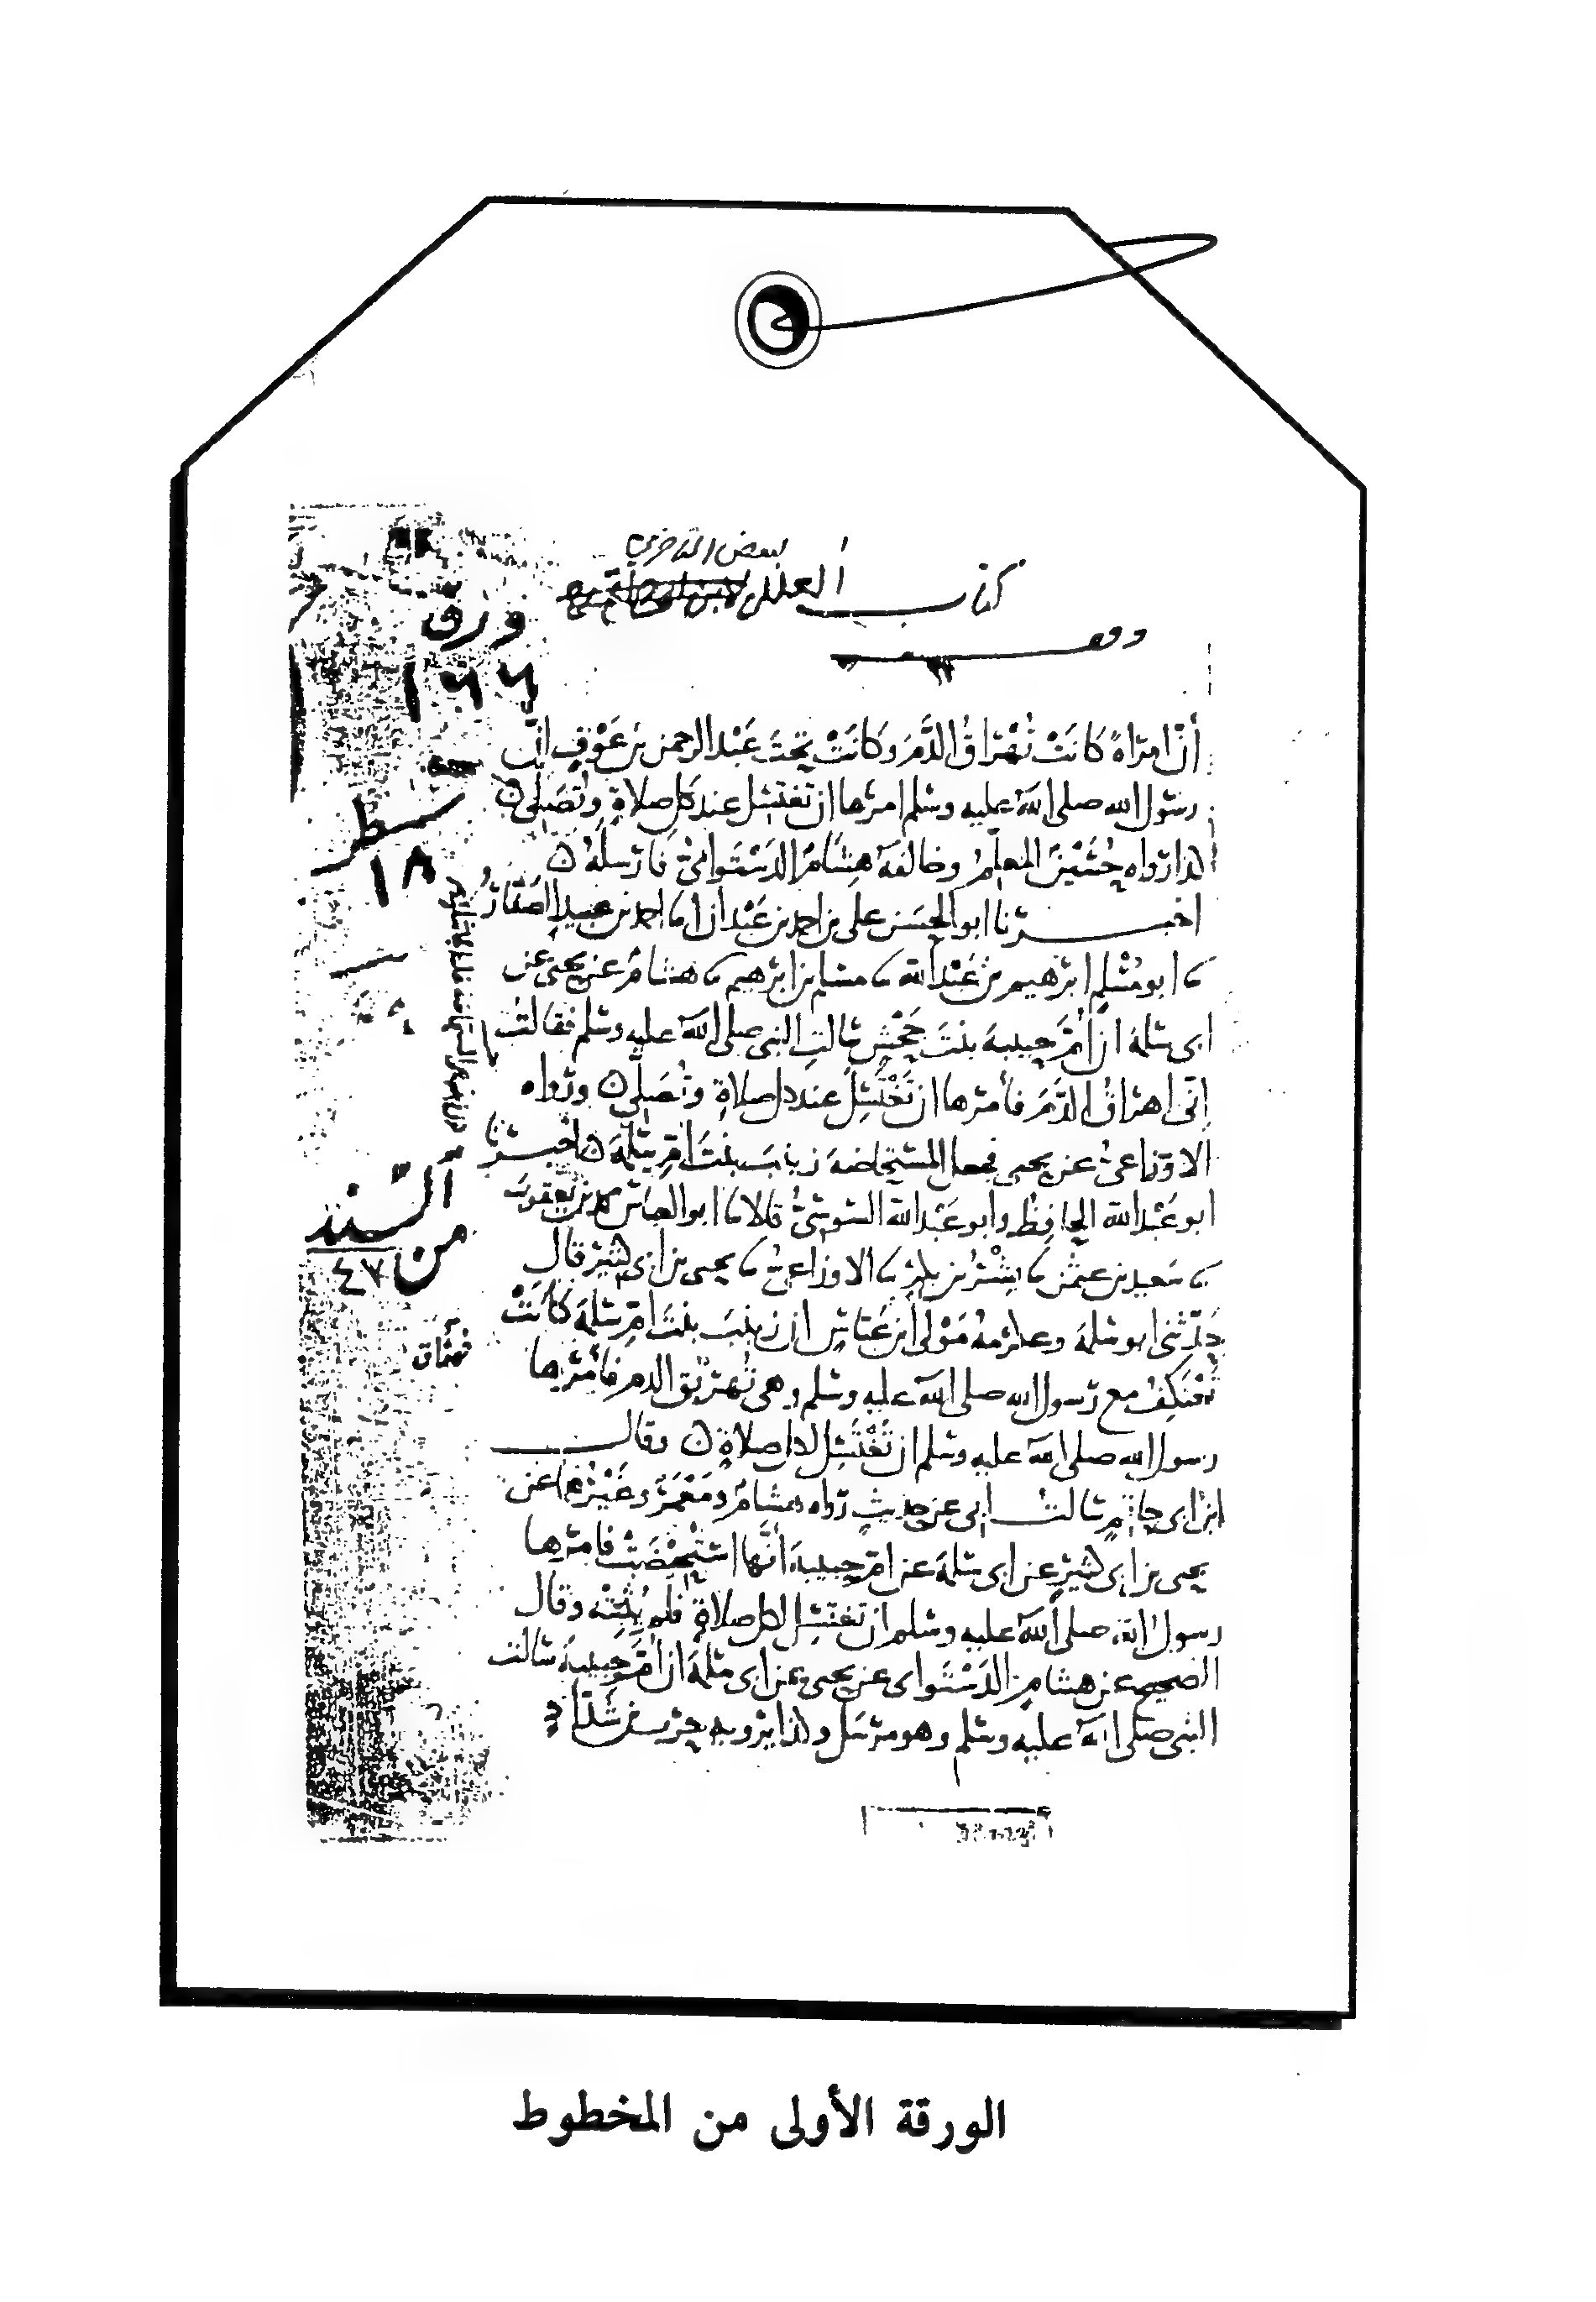 بعض المتأخرين
كتاب العلل لابن ابي حاتم
وقف
ورق
١٦٦
سطر
١٨
السنه
من ٤٧
تهراق
أنّ امرَاةً كانَتْ تُهْرَاقُ الدَّمَ وكَانَتْ تحتَ عَبْد الرحمن بن عَوْفٍ انّ
رسُول الله صلى الله عليه وسلم امرَها ان تغتسِل عند كل صلاةٍ وتُصَلى ن
كذا رواه حُسَيْنٌ المعلّمُ وخالفَهُ هِشامٌ الدَسْتَوائيُّ فارسلَهُ ن
اخبرنا ابو الحسَن على بن احمد بن عَبْدان انا احمد بن عبيد الصَفّارُ
نا ابو مُسْلِم ابرٰهيم بن عَبْد الله نا مسلم بن ابرٰهيم نا هشامٌ عن يحيى عن
ابى سلمة ان أمَّ حبيبةَ بنتَ جَحْشٍ سَالتِ النبى صلى الله عليه وسلم فقالت
إنّى اهراقُ الدَّمَ فأمرَها ان تَغْتَسِلَ عند كل صلاةٍ وتُصَلّى ن ورواه
الاوزاعىُّ عن يحيى فجعل المستحاضةَ زينبَ بنتَ امّ سَلمَة ن اخبرنا
ابو عَبْد الله الحافظُ وابو عَبْد الله السُوسِىُّ قالا نا ابو العباس محمد بن يعقوب
نا سَعيد بن عثمٰن نا بِشْرُ بن بكرٍ نا الاوزاعىُّ نا يحيى بن ابى كثيرٍ قال
حَدّثنى ابو سلمة وعكرمةُ مَوْلى ابن عَبّاسٍ ان زينبَ بنتَ امّ سَلمَة كانَتْ
تَعْتَكِفُ مع رَسول الله صلى الله عليه وسلم وهى تُهَرِيقُ الدم فأمَرَها
رسول الله صلى الله عليه وسلم ان تَغْتَسِل لكل صلاةٍ ن وقال
ابن ابى حاتِم سَالتُ ابى عن حديثٍ رَواه هشامٌ ومَعْمَرٌ وغَيْرُهما عن
يحيى بن ابى كثيرٍ عن ابى سَلمَة عن امّ حبيبةَ أنَّها اسْتُحِيْضَتْ فامَرَها
رسول الله صلى الله عليه وسلم ان تغتسِل لكل صلاةٍ فلم يُثْبِتْه وقال
الصحيح عن هشام الدَسْتَوائى عن يحيى عن ابى سَلمَة ان أمّ حبيبةَ سَالت
النبى صلى الله عليه وسلم وهو مرسَل وكذا يَرويه حَرْب بن شَدّادٍ
الورقة الأولى من المخطوط